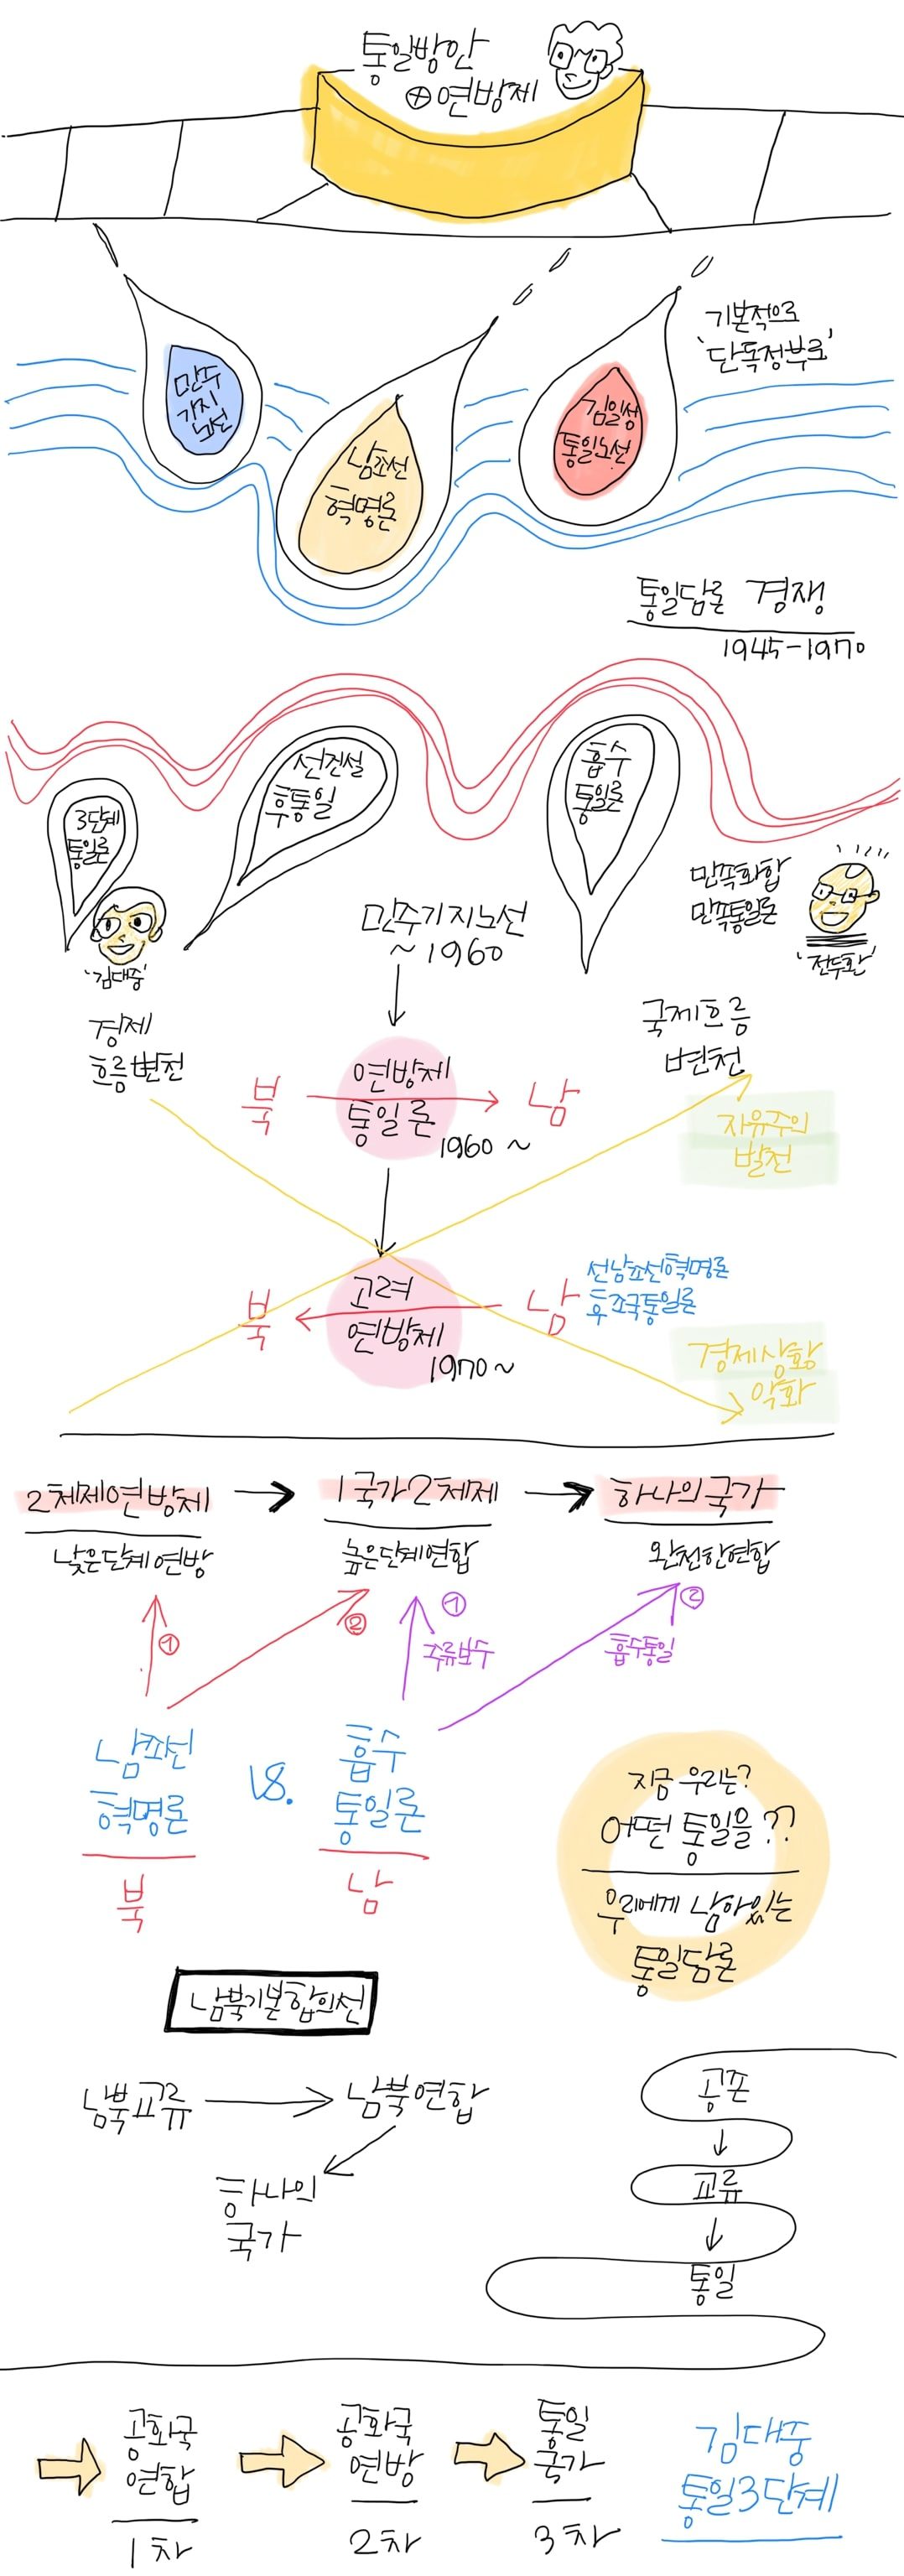 통일방안
⊕연방제
기본적으로
'단독정부로'
민주
기지
노선
남조선
혁명론
김일성
통일노선
통일담론 경쟁
1945-1970
3단계
통일론
선건설
후통일
흡수
통일론
'김대중'
민주기지노선
~1960
민족화합
민족통일론
'전두환'
경제
흐름변천
국제흐름
변천
북
연방제
통일론
1960~
남
자유주의
발전
북
고려
연방제
1970~
남
선남조선혁명론
후조국통일론
경제상황
악화
2체제연방제
1국가2체제
하나의국가
낮은단계연방
높은단계연합
완전한연합
①
②
①
주류보수
②
흡수통일
남조선
혁명론
북
vs.
흡수
통일론
남
지금 우리는?
어떤 통일을??
우리에게 남아있는
통일담론
남북기본합의서
남북교류
남북연합
하나의
국가
공존
교류
통일
공화국
연합
1차
공화국
연방
2차
통일
국가
3차
김대중
통일3단계